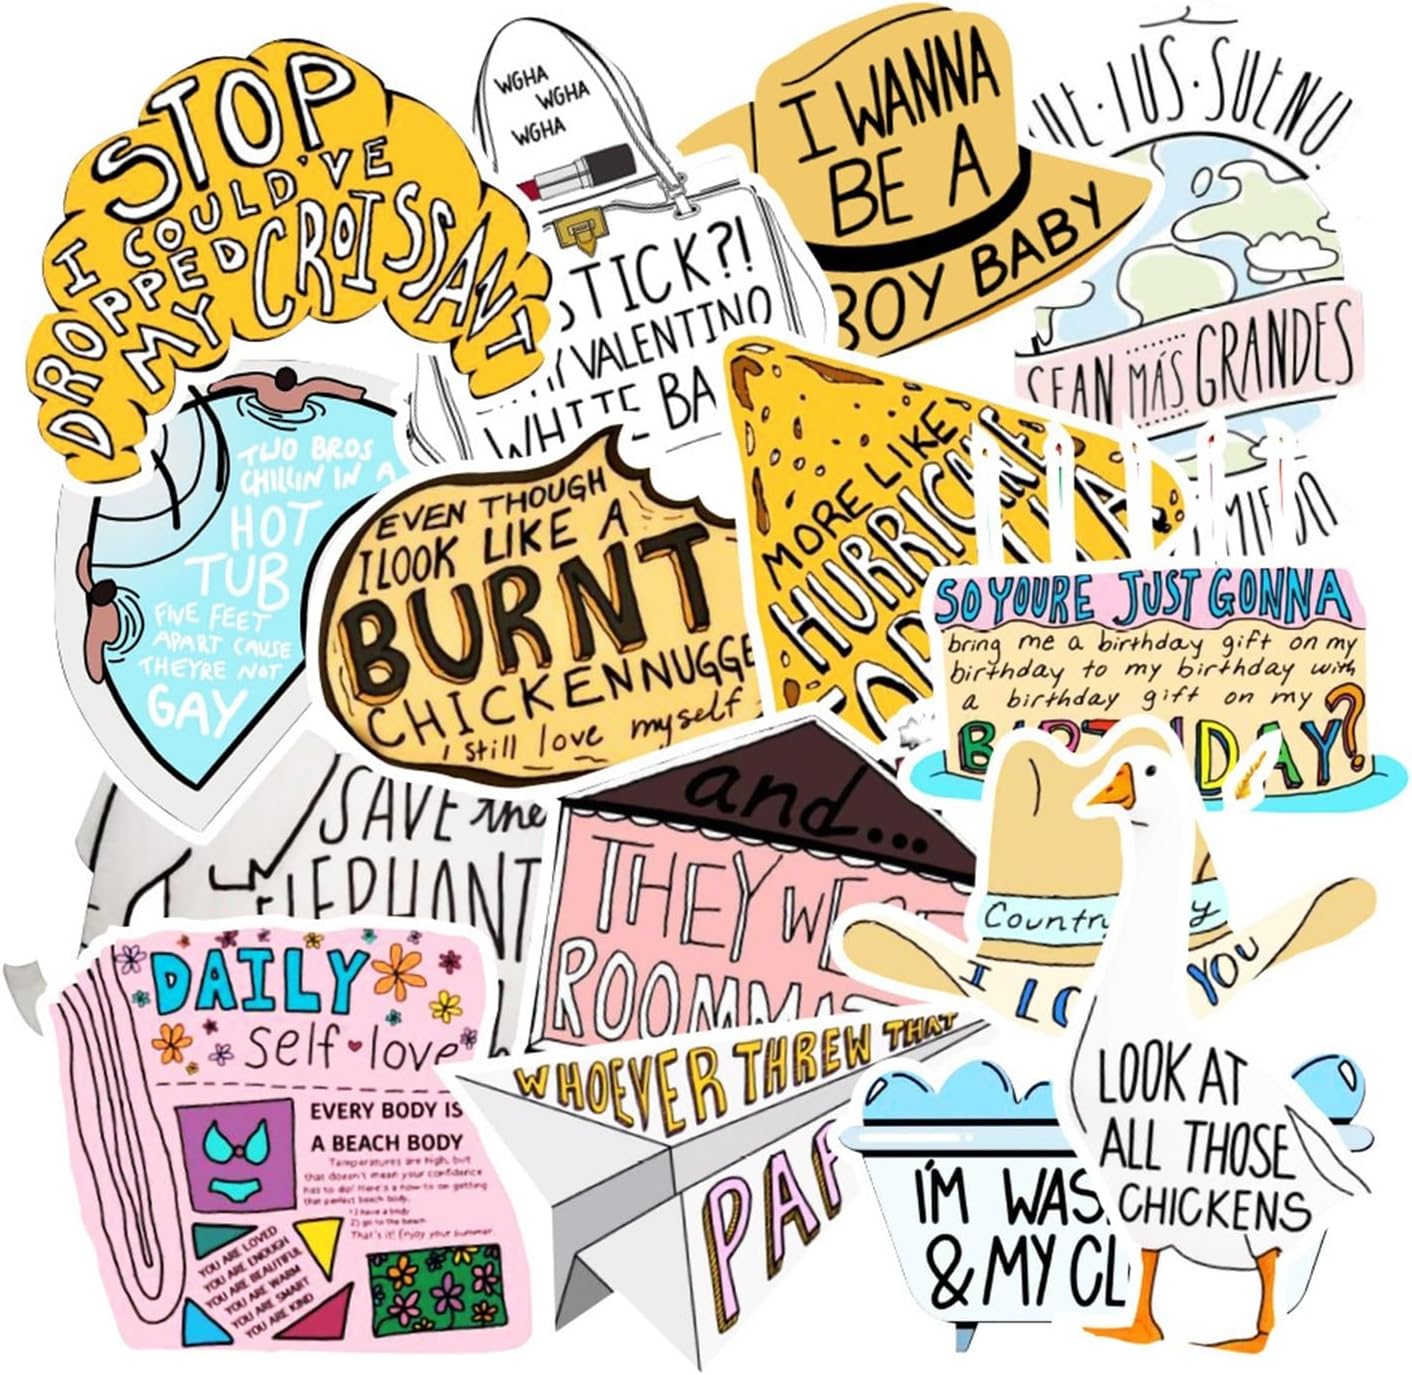 STOP
I COULD'VE
DROPPED
MY CROISSANT
WGHA
WGHA
WGHA
STICK?!
VALENTINO
WHITE BA
I WANNA
BE A
BOY BABY
TUS SUEÑO
SEAN MÁS GRANDES
TWO BROS
CHILLIN IN A
HOT
TUB
FIVE FEET
APART CAUSE
THEYRE NOT
GAY
EVEN THOUGH
I LOOK LIKE A
BURNT
CHICKEN NUGGE
I still love myself
MORE LIKE
HURRICANE
SO YOURE JUST GONNA
bring me a birthday gift on my
birthday to my birthday with
a birthday gift on my
BIRTHDAY?
SAVE the
ELEPHANT
and...
THEY WERE
ROOMMAT
Country
I LO YOU
DAILY
self love
EVERY BODY IS
A BEACH BODY
Temperatures are high, but
that doesn't mean your confidence
has to do! Here's a how-to on getting
that perfect beach body.
1) have a body
2) go to the beach
That's it! Enjoy your summer.
YOU ARE LOVED
YOU ARE ENOUGH
YOU ARE BEAUTIFUL
YOU ARE WARM
YOU ARE SMART
YOU ARE KIND
WHOEVER THREW THAT
PAP
I'M WAS
& MY CL
LOOK AT
ALL THOSE
CHICKENS